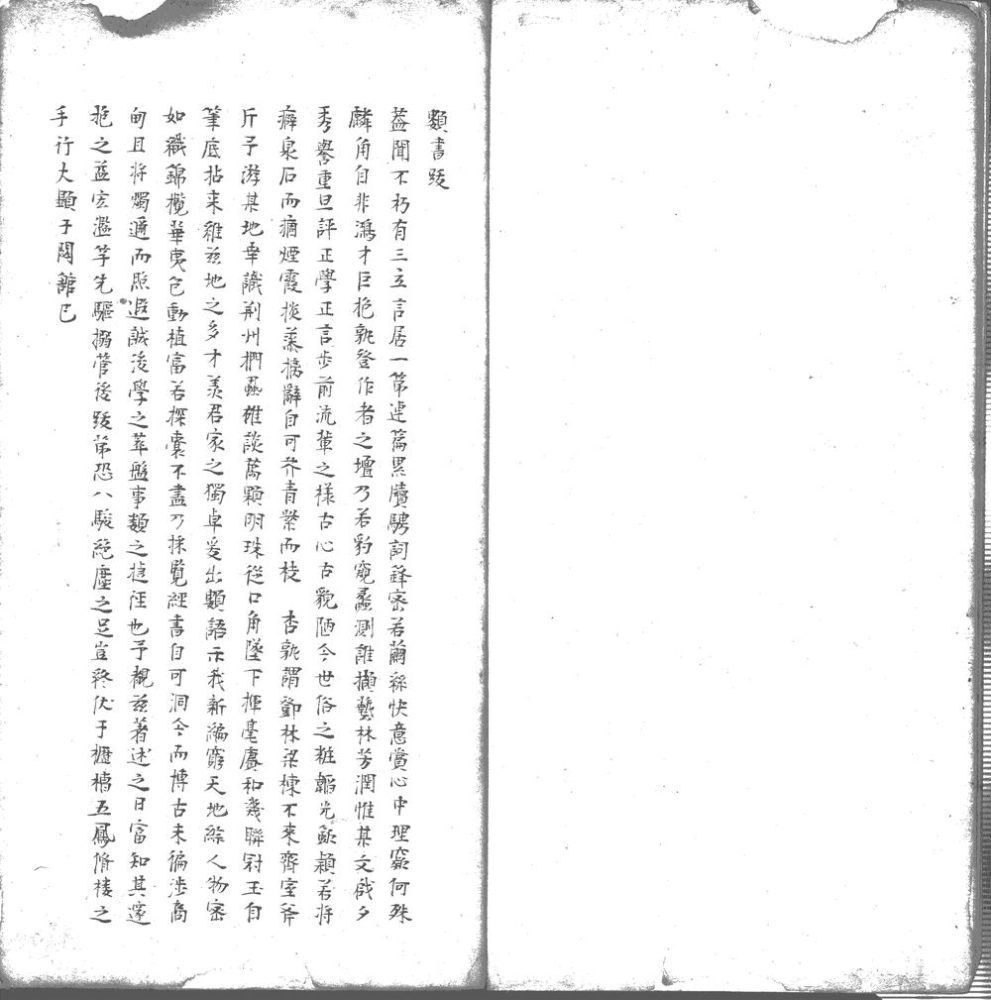 類書跋
蓋聞不朽有三立言居一第連篇累牘騁詞鋒密若繭絲快意賞心中理窾何殊
麟角自非鴻才巨抱孰登作者之壇乃若豹窺蠡測誰擷藝林芳潤惟某文戰夕
秀譽重旦評正學正言步前流輩之樣古心古貌陋今世俗之粧韜光斂穎若將
癖泉石而痼煙霞掞藻摛辭自可芥青紫而枝 杏孰謂鄧林梁棟不來齊室斧
斤予游某地幸識荊州捫蝨雄談萬顆明珠從口角墜下揮毫賡和幾聯冠玉自
筆底拈来雖茲地之多才羨君家之獨卓爰出類語示我新編窮天地綜人物密
如織錦攬華夷包動植富若探囊不盡乃採覧經書自可洞今而博古未徧涉裔
甸且將燭邇而照遐誠後學之萃盤事類之捷徑也予覩茲著述之日富知其邃
抱之益宏濫竽先驅搦管後跋第恐八駿絕塵之足豈終伏于櫪槽五鳳脩樓之
手行大顯于閣館已